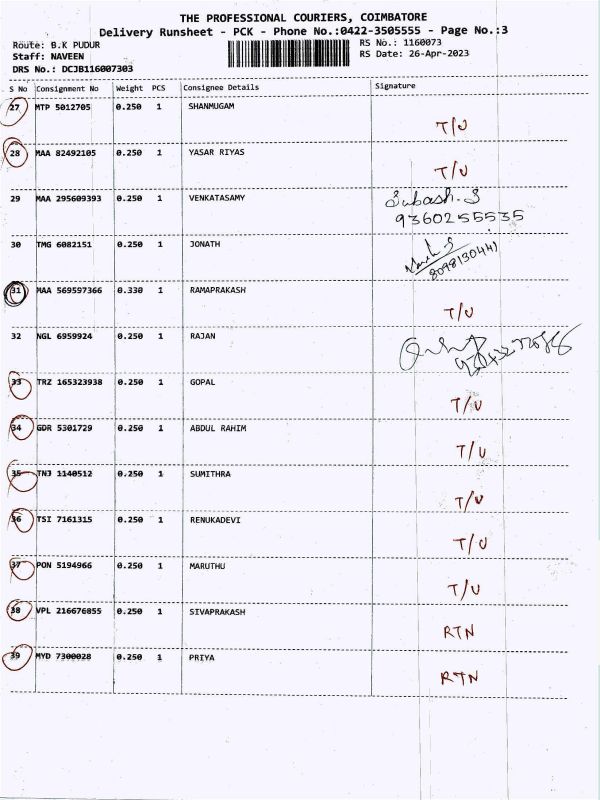 THE PROFESSIONAL COURIERS, COIMBATORE
Delivery Runsheet - PCK - Phone No.:0422-3505555 - Page No.:3
Route: B.K PUDUR
RS No.: 1160073
Staff: NAVEEN
RS Date: 26-Apr-2023
DRS No.: DCJB116007303
S No Consignment No Weight PCS Consignee Details Signature
27 MTP 5012705 0.250 1 SHANMUGAM
T/U
28 MAA 82492105 0.250 1 YASAR RIYAS
T/U
29 MAA 295609393 0.250 1 VENKATASAMY Subash.S
9360255535
30 TMG 6082151 0.250 1 JONATH
8098130441
31 MAA 569597366 0.330 1 RAMAPRAKASH
T/U
32 NGL 6959924 0.250 1 RAJAN
33 TRZ 165323938 0.250 1 GOPAL
T/U
34 GDR 5301729 0.250 1 ABDUL RAHIM
T/U
35 TNJ 1140512 0.250 1 SUMITHRA
T/U
36 TSI 7161315 0.250 1 RENUKADEVI
T/U
37 PON 5194966 0.250 1 MARUTHU
T/U
38 VPL 216676855 0.250 1 SIVAPRAKASH
RTN
39 MYD 7300028 0.250 1 PRIYA
RTN